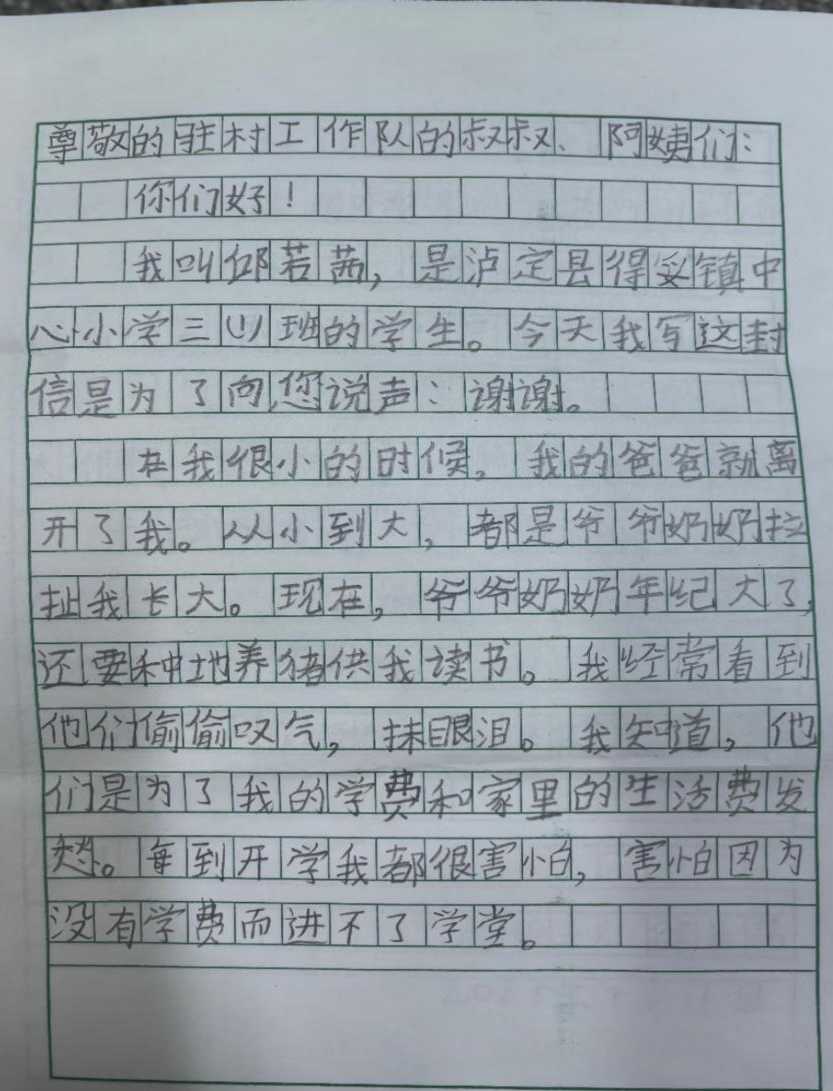 尊敬的驻村工作队的叔叔、阿姨们:
你们好!
我叫邱若茜,是泸定县得妥镇中
心小学三(1)班的学生。今天我写这封
信是为了向您说声:谢谢。
在我很小的时候,我的爸爸就离
开了我。从小到大,都是爷爷奶奶拉
扯我长大。现在,爷爷奶奶年纪大了,
还要种地养猪供我读书。我经常看到
他们偷偷叹气,抹眼泪。我知道,他
们是为了我的学费和家里的生活费发
愁。每到开学我都很害怕,害怕因为
没有学费而进不了学堂。